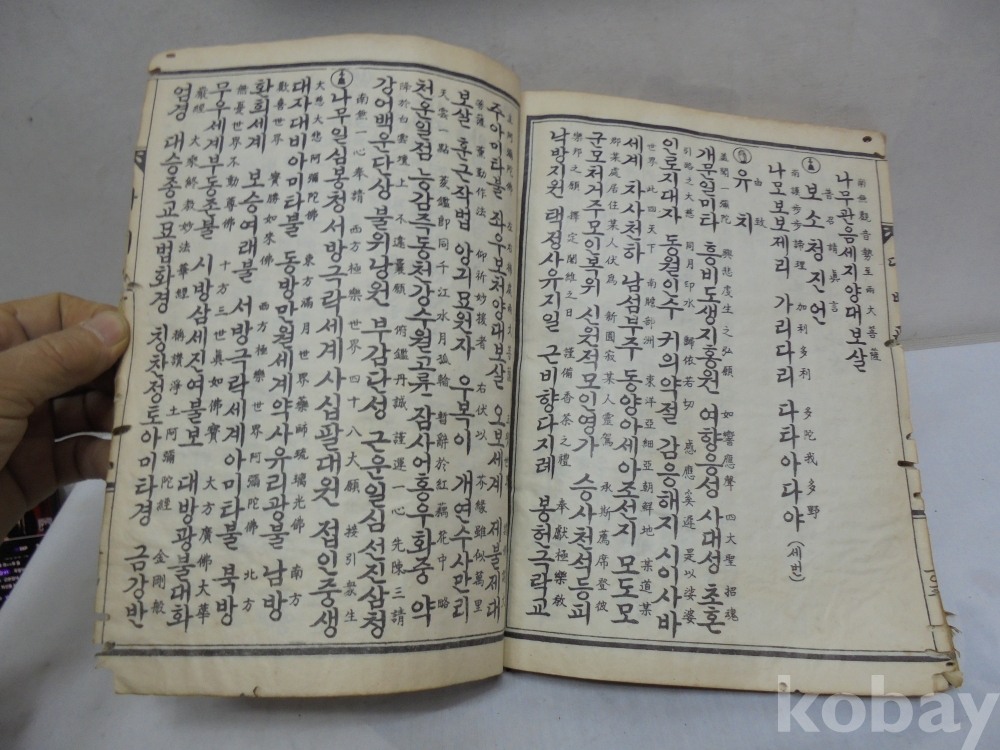 南無觀音勢至兩大菩薩
나무관음세지양대보살
普召請眞言
보소청진언
南謨步步諦理 加利多利 多陀我多野
나모보보제리 가리다리 다타아다야 (세번)
由致
유치
蓋聞一彌陀 興悲度生之弘願 如響應聲 四大聖 招魂
개문일미타 흥비도생지홍원 여향응성 사대성 초혼
引路之大慈 同月印水 歸依若切 感應奚遲 是以娑婆
인로지대자 동원인수 귀의약절 감응해지 시이사바
世界 此四天下 南贍部洲 東洋亞細亞朝鮮地 某道某
세계 차사천하 남섬부주 동양아세아조선지 모도모
郡某處居住某人伏爲 新圓寂某人靈駕 承斯薦席登彼
군모처거주모인복위 신원적모인영가 승사천석등피
樂邦之願 擇定闍維之日 謹備香茶之禮 奉獻極樂敎
낙방지원 택정사유지일 근비향다지례 봉헌극락교
主阿彌陀佛
주아미타불 좌우보처양대보살 오보세계 제불제대
菩薩 薰勤作法 仰祈妙援者 右伏以 芥緣雖似萬里
보살 훈근작법 앙기묘원자 우복이 개연수사만리
天雲一點 菱鑑卽同千江水月孤輪 暫辭於紅藕花中 略
천운일점 능감즉동천강수월고륜 잠사어홍우화중 약
降於白雲壇上 不違曩願 俯鑑丹誠 謹運一心 先陳三請
강어백운단상 불위낭원 부감단성 근운일심 선진삼청
南無一心奉請 西方極樂世界 四十八大願 接引衆生
나무일심봉청서방극락세계사십팔대원 접인중생
大慈大悲 阿彌陀佛 東方滿月世界藥師琉璃光佛 南方
대자대비아미타불 동방만월세계약사유리광불 남방
歡喜世界 寶勝如來佛 西方極樂世界阿彌陀佛 北方
환희세계 보승여래불 서방극락세계아미타불 북방
無憂世界不動尊佛 十方三世眞如佛寶 大方廣佛大華
무우세계부동존불 시방삼세진여불보 대방광불대화
嚴經 大乘終敎妙法華經 稱讚淨土阿彌陀經 金剛般
엄경 대승종교묘법화경 칭찬정토아미타경 금강반
kobay